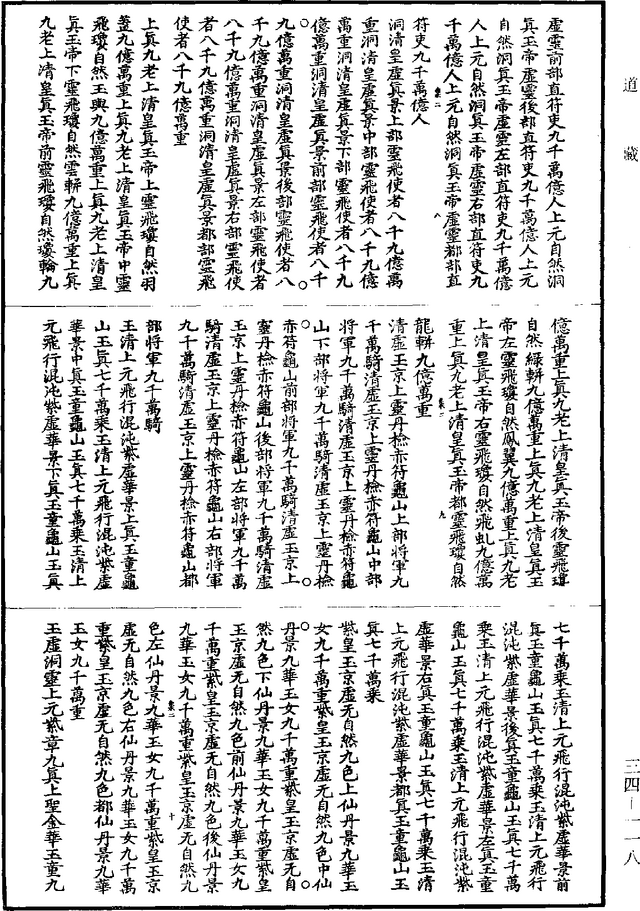 道藏
虛靈前部直符吏九千萬億人上元自然洞
真玉帝虛靈後部直符吏九千萬億人上元
自然洞真玉帝虛靈左部直符吏九千萬億
人上元自然洞真玉帝虛靈右部直符吏九
千萬億人上元自然洞真玉帝虛靈都部直
符吏九千萬億人
洞清皇虛真景上部靈飛使者八千九億萬
重洞清皇虛真景中部靈飛使者八千九億
萬重洞清皇虛真景下部靈飛使者八千九
億萬重洞清皇虛真景前部靈飛使者八千
九億萬重洞清皇虛真景後部靈飛使者八
千九億萬重洞清皇虛真景左部靈飛使者
八千九億萬重洞清皇虛真景右部靈飛使
者八千九億萬重洞清皇虛真景都部靈飛
使者八千九億萬重
上真九老上清皇真玉帝上靈飛瓊自然羽
蓋九億萬重上真九老上清皇真玉帝中靈
飛瓊自然玉輿九億萬重上真九老上清皇
真玉帝下靈飛瓊自然雲軿九億萬重上真
九老上清皇真玉帝前靈飛瓊自然瓊輪九
億萬重上真九老上清皇真玉帝後靈飛瓊
自然綠軿九億萬重上真九老上清皇真玉
帝左靈飛瓊自然鳳翼九億萬重上真九老
上清皇真玉帝右靈飛瓊自然飛虬九億萬
重上真九老上清皇真玉帝都靈飛瓊自然
龍軿九億萬重
清虛玉京上靈丹檢赤符龜山上部將軍九
千萬騎清虛玉京上靈丹檢赤符龜山中部
將軍九千萬騎清虛玉京上靈丹檢赤符龜
山下部將軍九千萬騎清虛玉京上靈丹檢
赤符龜山前部將軍九千萬騎清虛玉京上
靈丹檢赤符龜山後部將軍九千萬騎清虛
玉京上靈丹檢赤符龜山左部將軍九千萬
騎清虛玉京上靈丹檢赤符龜山右部將軍
九千萬騎清虛玉京上靈丹檢赤符龜山都
部將軍九千萬騎
玉清上元飛行混沌紫虛華景上真玉童龜
山玉真七千萬乘玉清上元飛行混沌紫虛
華景中真玉童龜山玉真七千萬乘玉清上
元飛行混沌紫虛華景下真玉童龜山玉真
七千萬乘玉清上元飛行混沌紫虛華景前
真玉童龜山玉真七千萬乘玉清上元飛行
混沌紫虛華景後真玉童龜山玉真七千萬
乘玉清上元飛行混沌紫虛華景左真玉童
龜山玉真七千萬乘玉清上元飛行混沌紫
虛華景右真玉童龜山玉真七千萬乘玉清
上元飛行混沌紫虛華景都真玉童龜山玉
真七千萬乘
紫皇玉京虛无自然九色上仙丹景九華玉
女九千萬重紫皇玉京虛无自然九色中仙
丹景九華玉女九千萬重紫皇玉京虛无自
然九色下仙丹景九華玉女九千萬重紫皇
玉京虛无自然九色前仙丹景九華玉女九
千萬重紫皇玉京虛无自然九色後仙丹景
九華玉女九千萬重紫皇玉京虛无自然九
色左仙丹景九華玉女九千萬重紫皇玉京
虛无自然九色右仙丹景九華玉女九千萬
重紫皇玉京虛无自然九色都仙丹景九華
玉女九千萬重
玉虛洞靈上元紫章九真上聖金華玉童九
三四－一一八